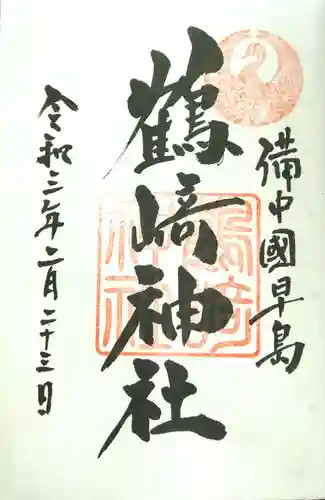 備中國早島
鶴﨑神社
令和三年二月二十三日
鶴崎
神社